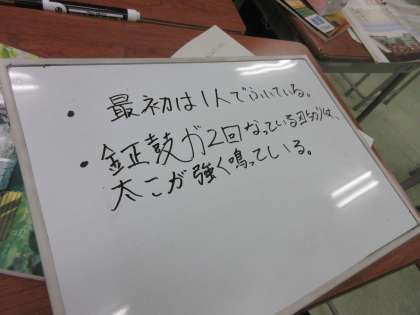 ・最初は1人でふいている。
・鉦鼓が2回なっている辺りは、
太こが強く鳴っている。